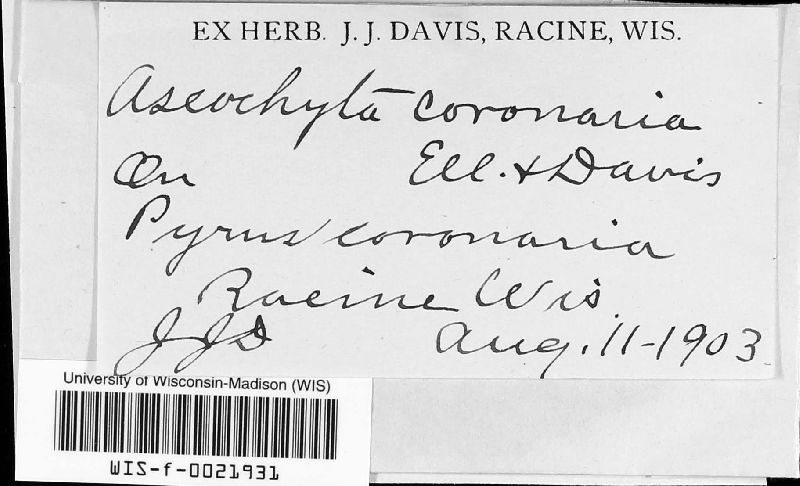 EX HERB. J. J. DAVIS, RACINE, WIS.
Ascochyta coronaria
On Ell. & Davis
Pyrus coronaria
Racine Wis
JJD Aug. 11-1903
University of Wisconsin-Madison (WIS)
WIS-f-0021931